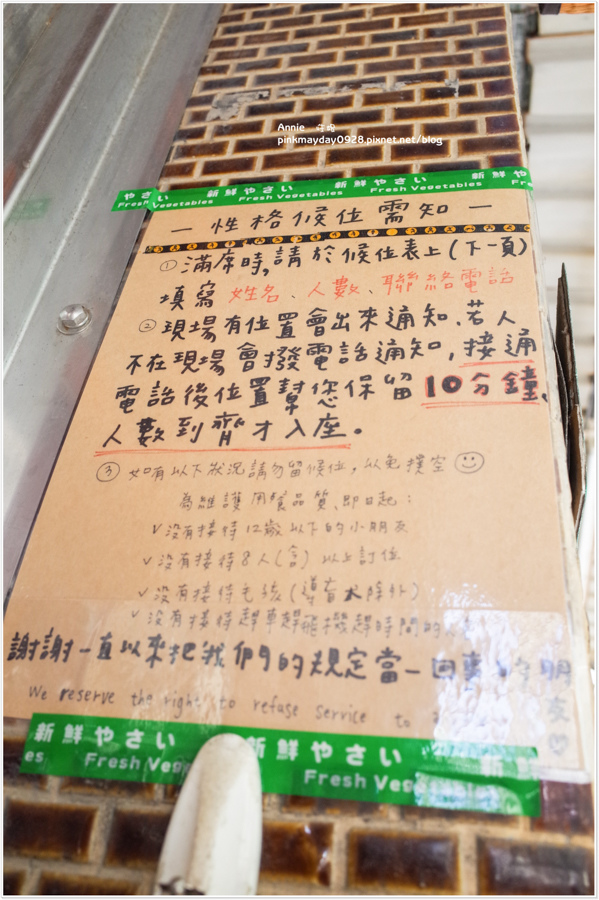 Annie
pinkmayday0928.pixnet.net/blog
やさい 新鮮やさい 新鮮やさい 新鮮や
Vegetables Fresh Vegetables Fresh Vegetables Fres
— 性格候位需知 —
① 滿席時,請於候位表上(下一頁)
填寫 姓名、人數、聯絡電話
② 現場有位置會出來通知、若人
不在現場會撥電話通知,接通
電話後位置幫您保留10分鐘、
人數到齊才入座。
③ 如有以下狀況請勿留候位,以免撲空
為維護用餐品質、即日起:
✓沒有接待12歲以下的小朋友
✓沒有接待8人(含)以上訂位
✓沒有接待毛孩(導盲犬除外)
✓沒有接待趕車趕飛機趕時間的人
謝謝一直以來把我們的規定當一回事的朋友♡
We reserve the right to refuse service to
新鮮やさい 新鮮やさい 新鮮
es Fresh Vege Fresh Vegetables